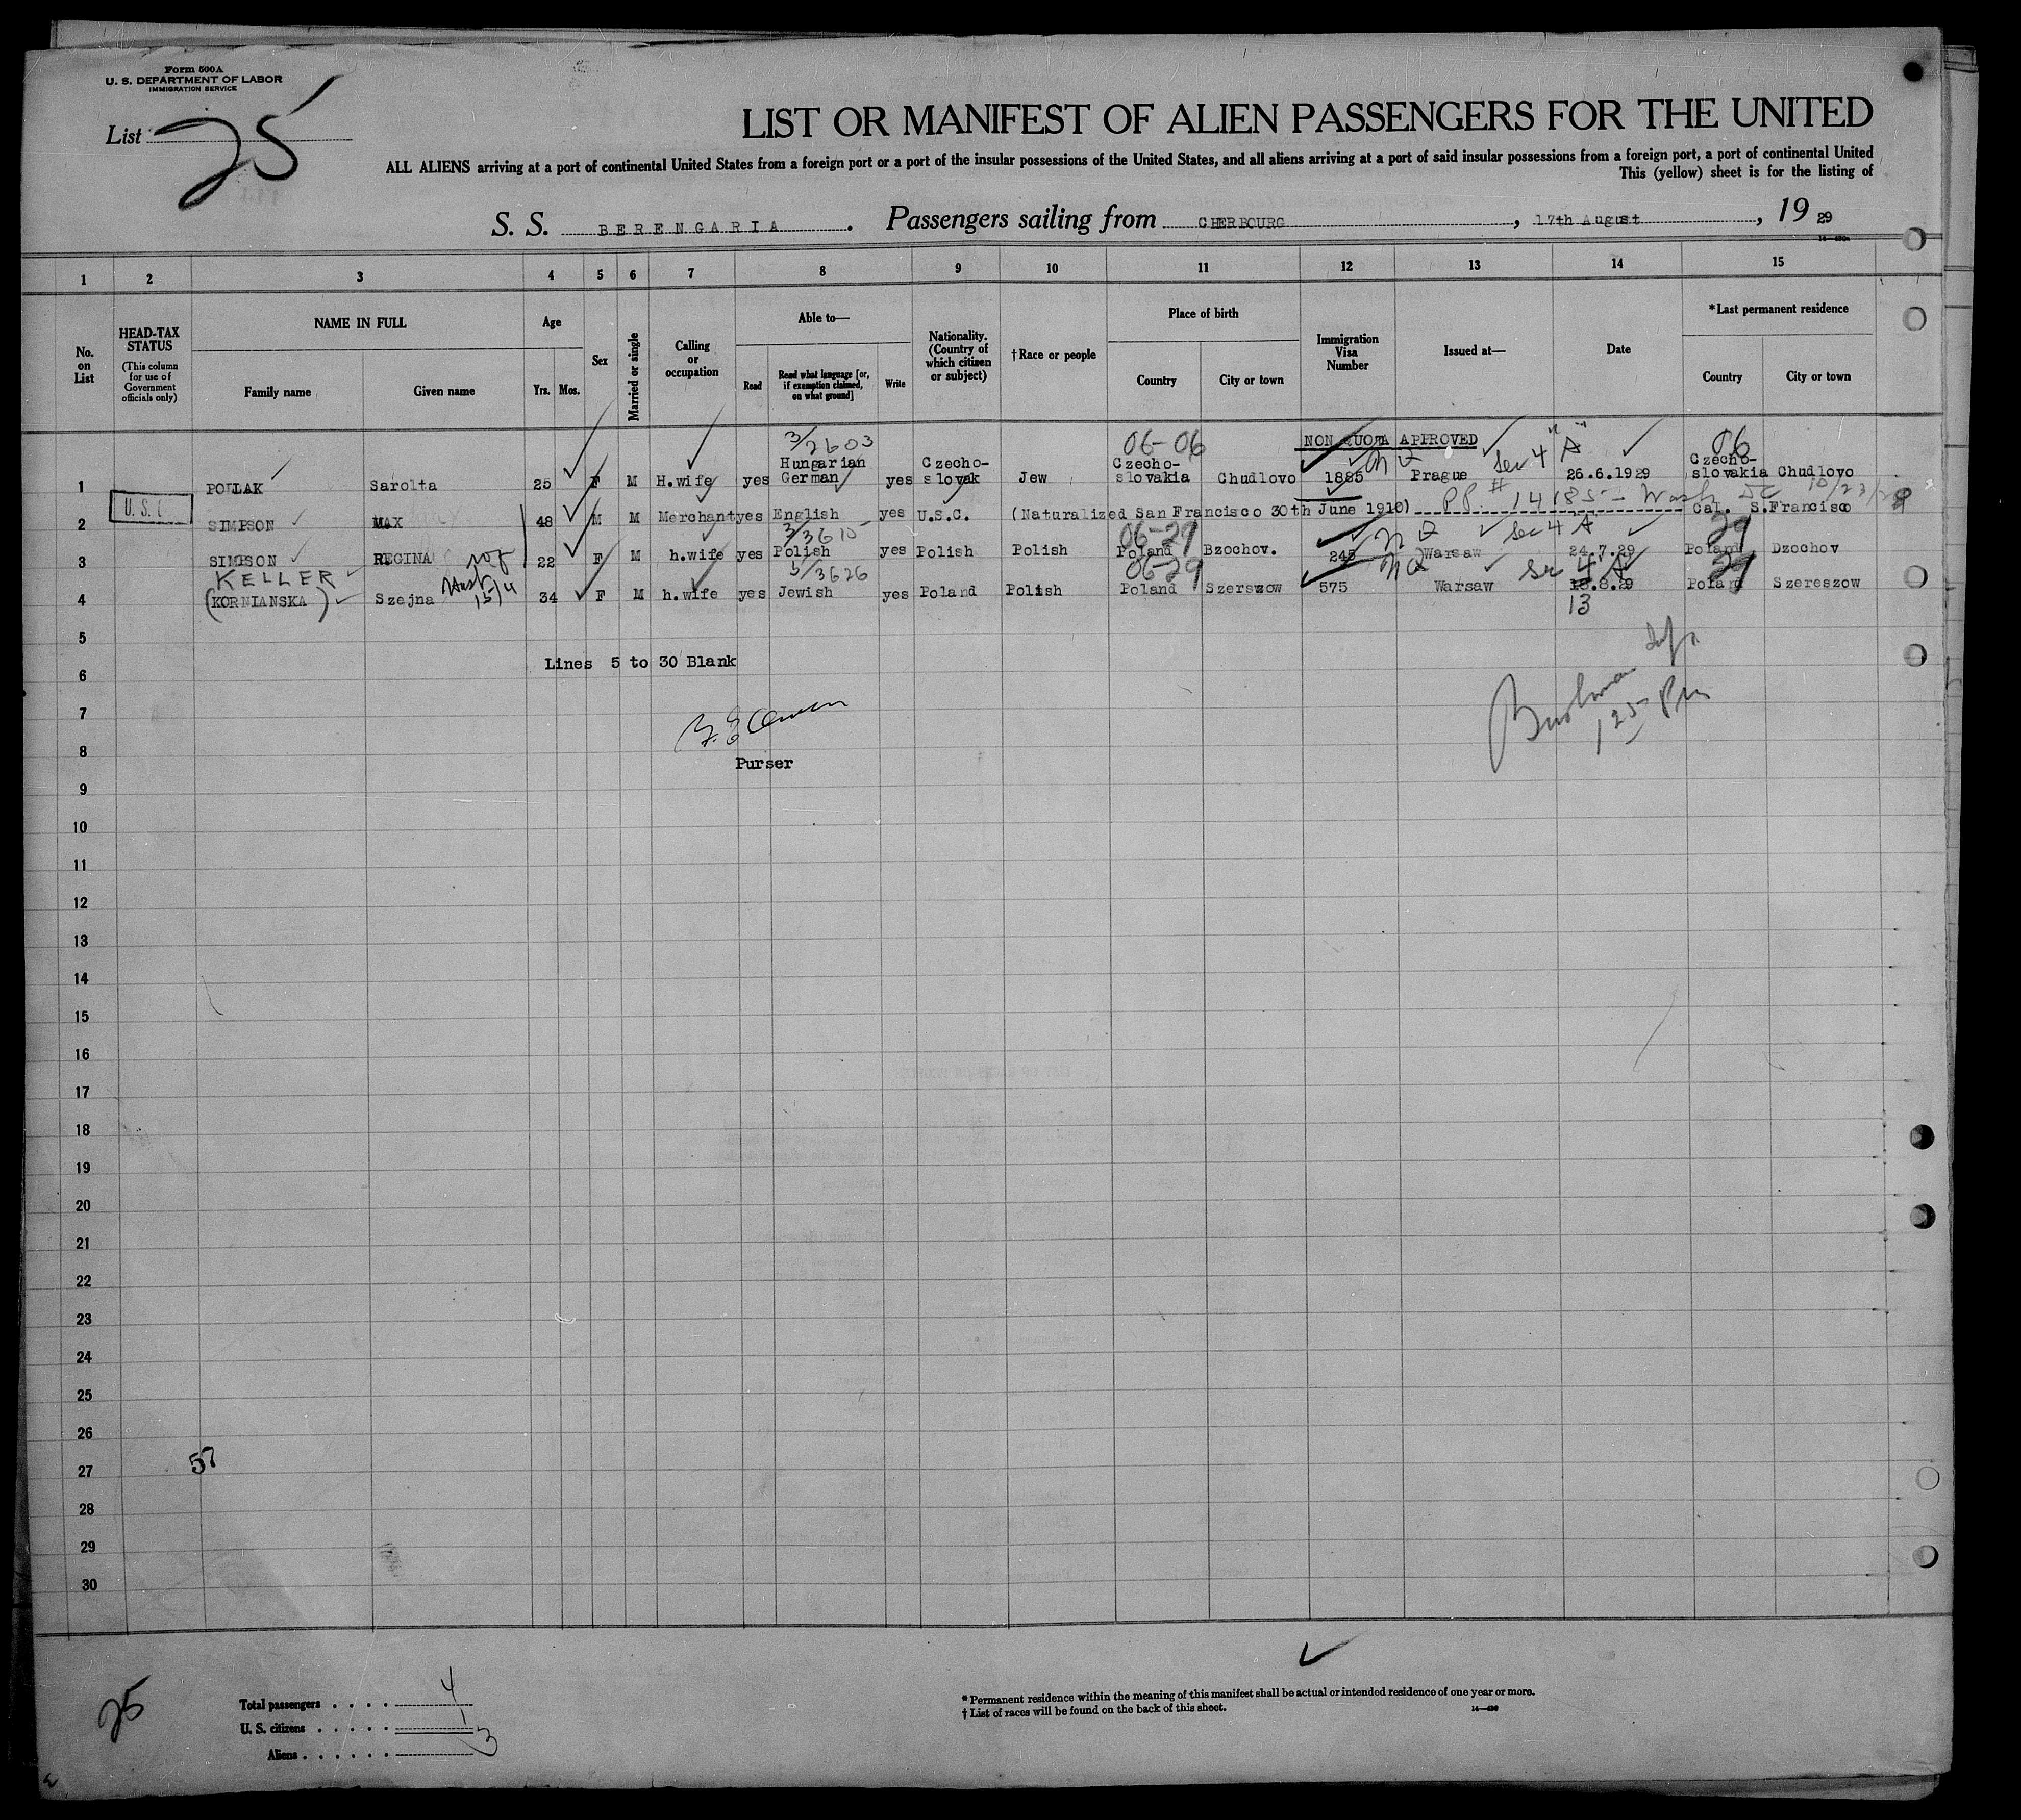 Form 500A
U. S. DEPARTMENT OF LABOR
IMMIGRATION SERVICE
List 25
LIST OR MANIFEST OF ALIEN PASSENGERS FOR THE UNITED
ALL ALIENS arriving at a port of continental United States from a foreign port or a port of the insular possessions of the United States, and all aliens arriving at a port of said insular possessions from a foreign port, a port of continental United
This (yellow) sheet is for the listing of
S. S. BERENGARIA. Passengers sailing from CHERBOURG, 17th August, 19 29
1 2 3 4 5 6 7 8 9 10 11 12 13 14 15
No. on List
HEAD-TAX STATUS
(This column for use of Government officials only)
NAME IN FULL
Family name
Given name
Age
Yrs. Mos.
Sex
Married or single
Calling or occupation
Able to—
Read
Read what language [or, if exemption claimed, on what ground]
Write
Nationality. (Country of which citizen or subject)
†Race or people
Place of birth
Country
City or town
Immigration Visa Number
Issued at—
Date
*Last permanent residence
Country
City or town
3/2603 06-06 NON QUOTA APPROVED 06
1 POLLAK Sarolta 25 F M H.wife yes Hungarian German yes Czecho-slovak Jew Czecho-slovakia Chudlovo 1885 NQ Prague Sec 4 "A" 26.6.1929 Czecho-slovakia Chudlovo
2 U.S.C. SIMPSON MAX 48 M M Merchant yes English yes U.S.C. (Naturalized San Francisco 30th June 1910) PP. # 14185 - Wash DC 10/23/28 Cal. S.Francisco
3/3610 06-29 NQ Sec 4 A 29
3 SIMPSON REGINA 22 F M h.wife yes Polish yes Polish Polish Poland Bzochov. 245 Warsaw 24.7.29 Poland Dzochov
KELLER 15/4 5/3626 06-29 NQ Sec 4 A 29
4 (KORNIANSKA) Szejna 34 F M h.wife yes Jewish yes Poland Polish Poland Szerszow 575 Warsaw 8.29 Poland Szereszow
13
5
Lines 5 to 30 Blank
6
7
8
Purser
9
10
11
12
13
14
15
16
17
18
19
20
21
22
23
24
25
26
57
27
28
29
30
25
Total passengers 4
U. S. citizens 1
Aliens 3
*Permanent residence within the meaning of this manifest shall be actual or intended residence of one year or more.
†List of races will be found on the back of this sheet.
14—430